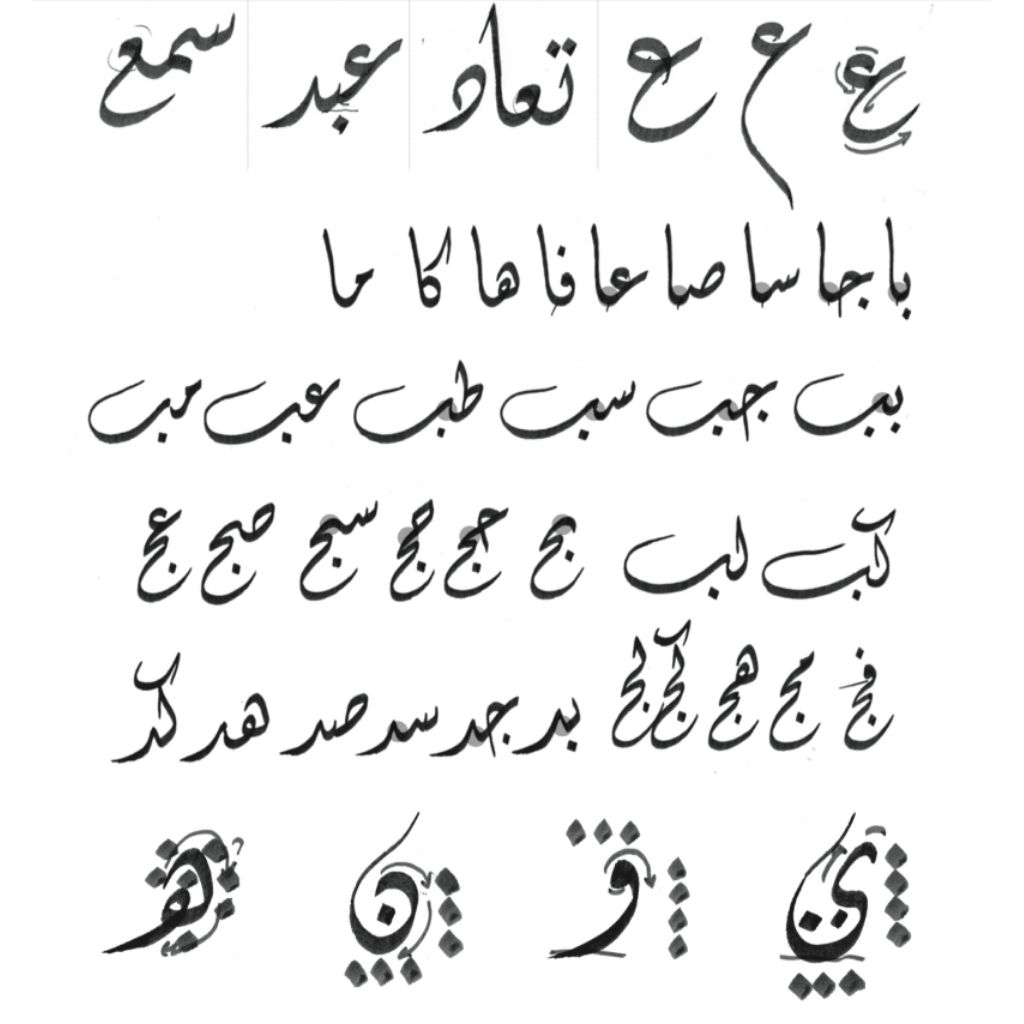 ع ع ع تعاد عبد سمع
با جا سا صا عا فا ها كا ما
ببب جب سب طب عب مب
كب لب بج حج حج سبج صبج عج
فج مج هج كج لج بد جد سد صد هد كد
ي و ن هو